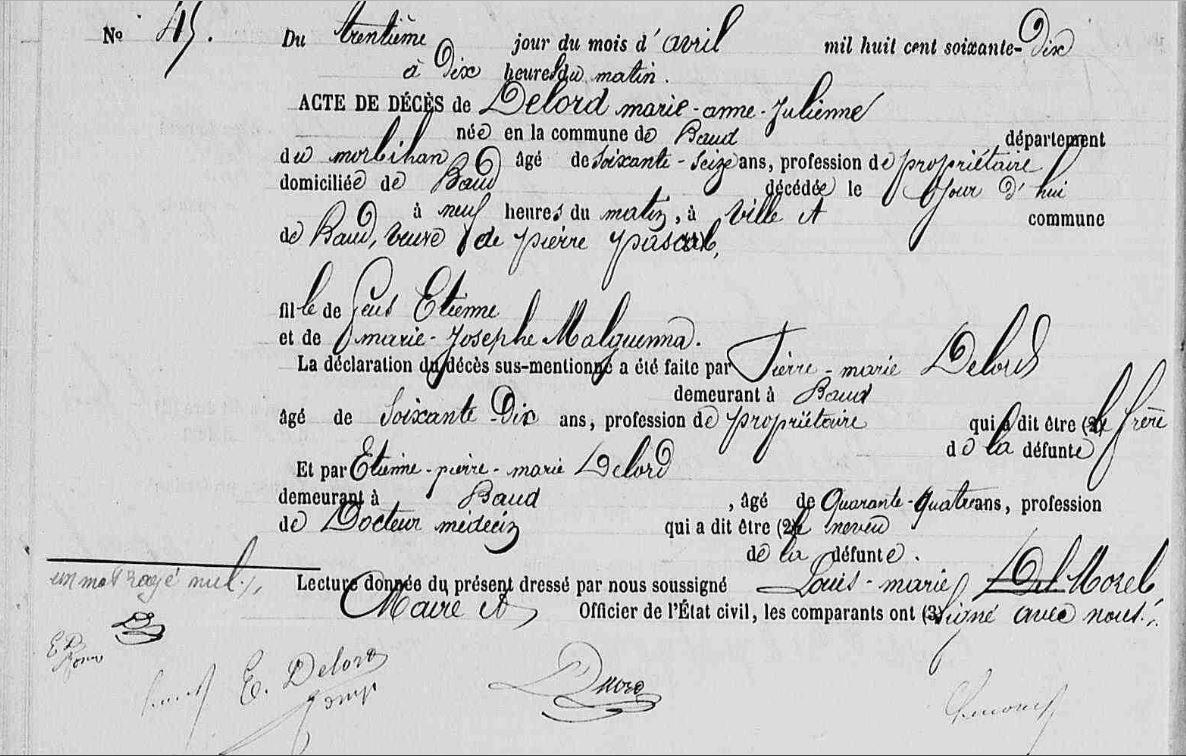 No 45.
Du trentième jour du mois d'avril mil huit cent soixante-Dix
à Dix heures du matin.
ACTE DE DÉCÈS de Delord marie-anne-Julienne
née en la commune de Baud département
du morbihan âgé de soixante-seize ans, profession de propriétaire
domiciliée de Baud décédée le jour d'hui
à neuf heures du matin, à ville et commune
de Baud, veuve de pierre pascal,
fille de feus Etienne
et de marie-Josephe Malguenna.
La déclaration du décès sus-mentionné a été faite par Pierre-marie Delord
demeurant à Baud
âgé de soixante-Dix ans, profession de propriétaire qui a dit être (2) le frère
de la défunte
Et par Etienne-pierre-marie Delord
demeurant à Baud, âgé de Quarante-quatre ans, profession
de Docteur médecin qui a dit être (2) le neveu
de la défunte.
un mot rayé nul./. Lecture donnée du présent dressé par nous soussigné Louis-marie Del Morel
Maire et Officier de l'État civil, les comparants ont (3) signé avec nous./.
E. D.
E. Delord